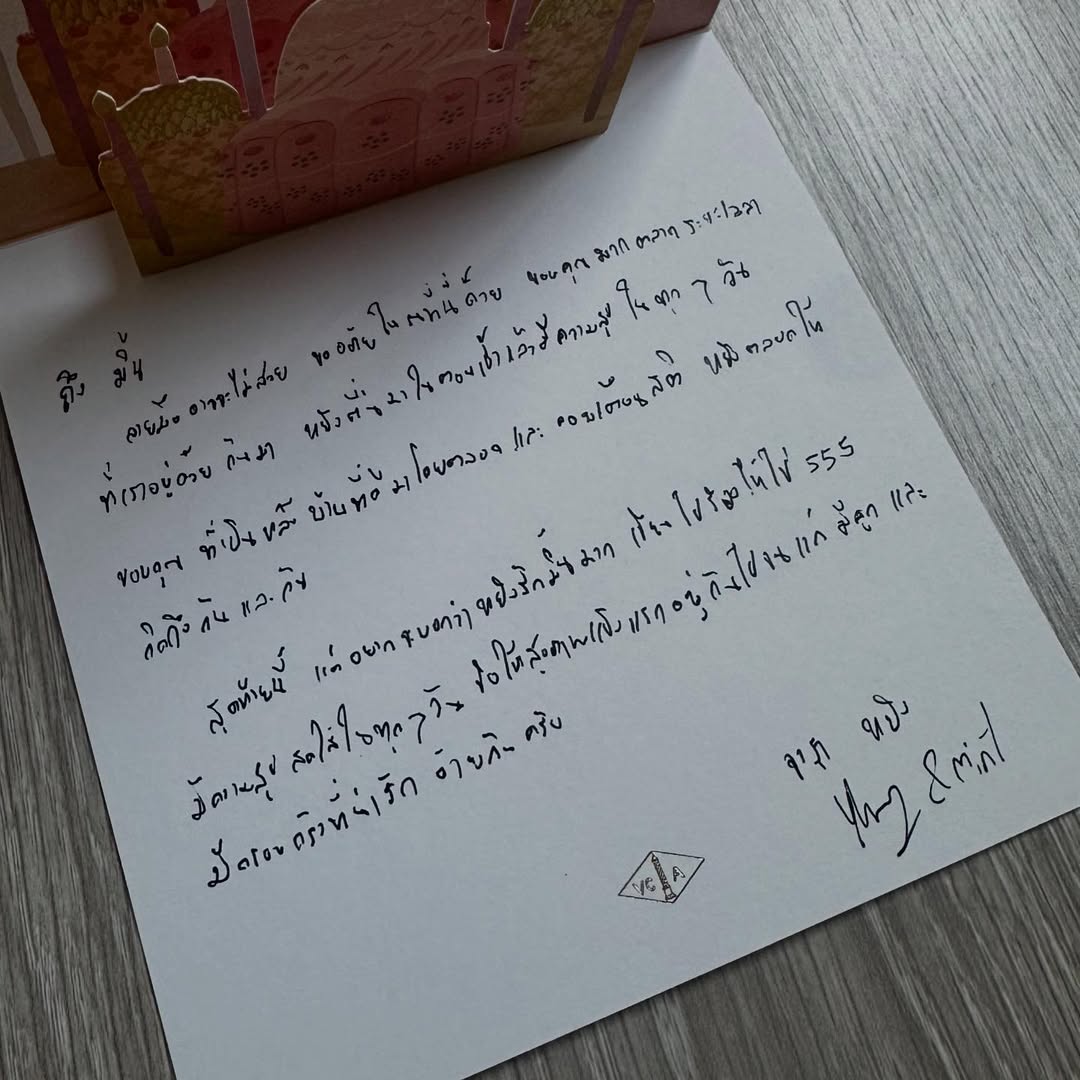 ถึง มิ้น
ลายมืออาจจะไม่สวย ขออภัยในที่นี้ด้วย ขอบคุณมากตลาดระยะเวลา
ที่เราอยู่ด้วยกันมา หยิงตื่นมาในตอนเช้าแล้วมีความสุขในทุก ๆ วัน
ขอบคุณ ที่เป็นหลังบ้านที่ดีมาโดยตลอด และ คอยเตือนสติ หยิงตลอดให้
คิดถึงกัน และกัน
สุดท้ายนี้ แค่อยากจะบอกว่าหยิงรักมิ้นมาก เขียนไปร้องไห้ไป 555
มีความสุข สดใสในทุก ๆ วัน ขอให้สุขภาพแข็งแรกอยู่กันไปจนแก่ มีลูก และ
มีครอบครัวที่น่ารัก ด้วยกันครับ
จาก หยิง
VC A